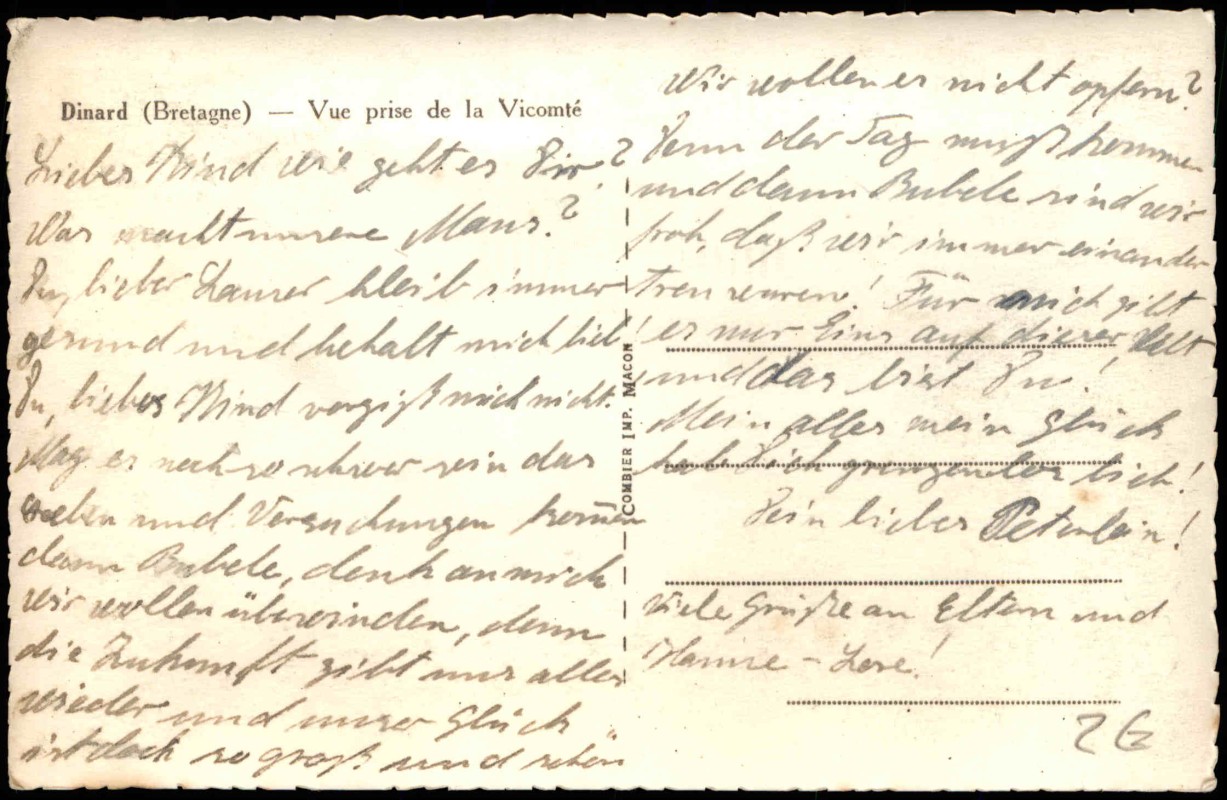 Dinard (Bretagne) — Vue prise de la Vicomté
Liebes Kind wie geht es Dir?
Was macht unsere Maus?
Du, lieber bleib immer
gesund und behalt mich lieb!
Du, liebes Kind vergiß mich nicht.
Mag es noch so schwer sein das
und Versuchungen kommen
dann Bubele, denk an mich
wir wollen überwinden, denn
die Zukunft gibt uns alles
wieder und unser Glück
ist doch so groß und schön
COMBIER IMP. MACON
Wir wollen es nicht opfern?
Denn der Tag muß kommen
und dann Bubele sind wir
froh, daß wir immer einander
treu waren! Für mich gibt
es nur Eins auf dieser Welt
und das bist Du!
Mein alles mein Glück
hab Dich grenzenlos lieb!
Dein liebes Peterlein!
Viele Grüße an Eltern und
Hanne-Lore!
2G